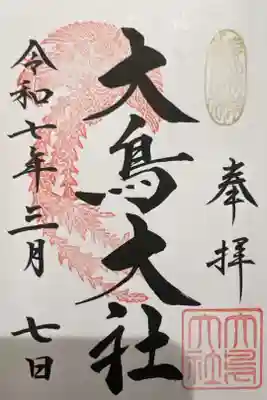 奉拝
大鳥大社
令和七年三月七日
大鳥
大社